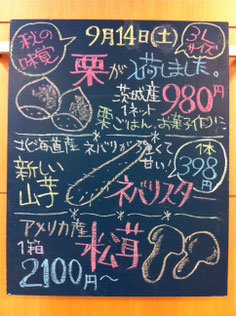 秋の味覚
9月14日(土)
3Lサイズ
栗が入荷しました。
茨城産
1ネット
980円
栗ごはん、お菓子作りに
北海道産
ネバリが強くて
甘い!
1本
398円
新しい
山芋
ネバリスター
アメリカ産
1箱
松茸
2100円～